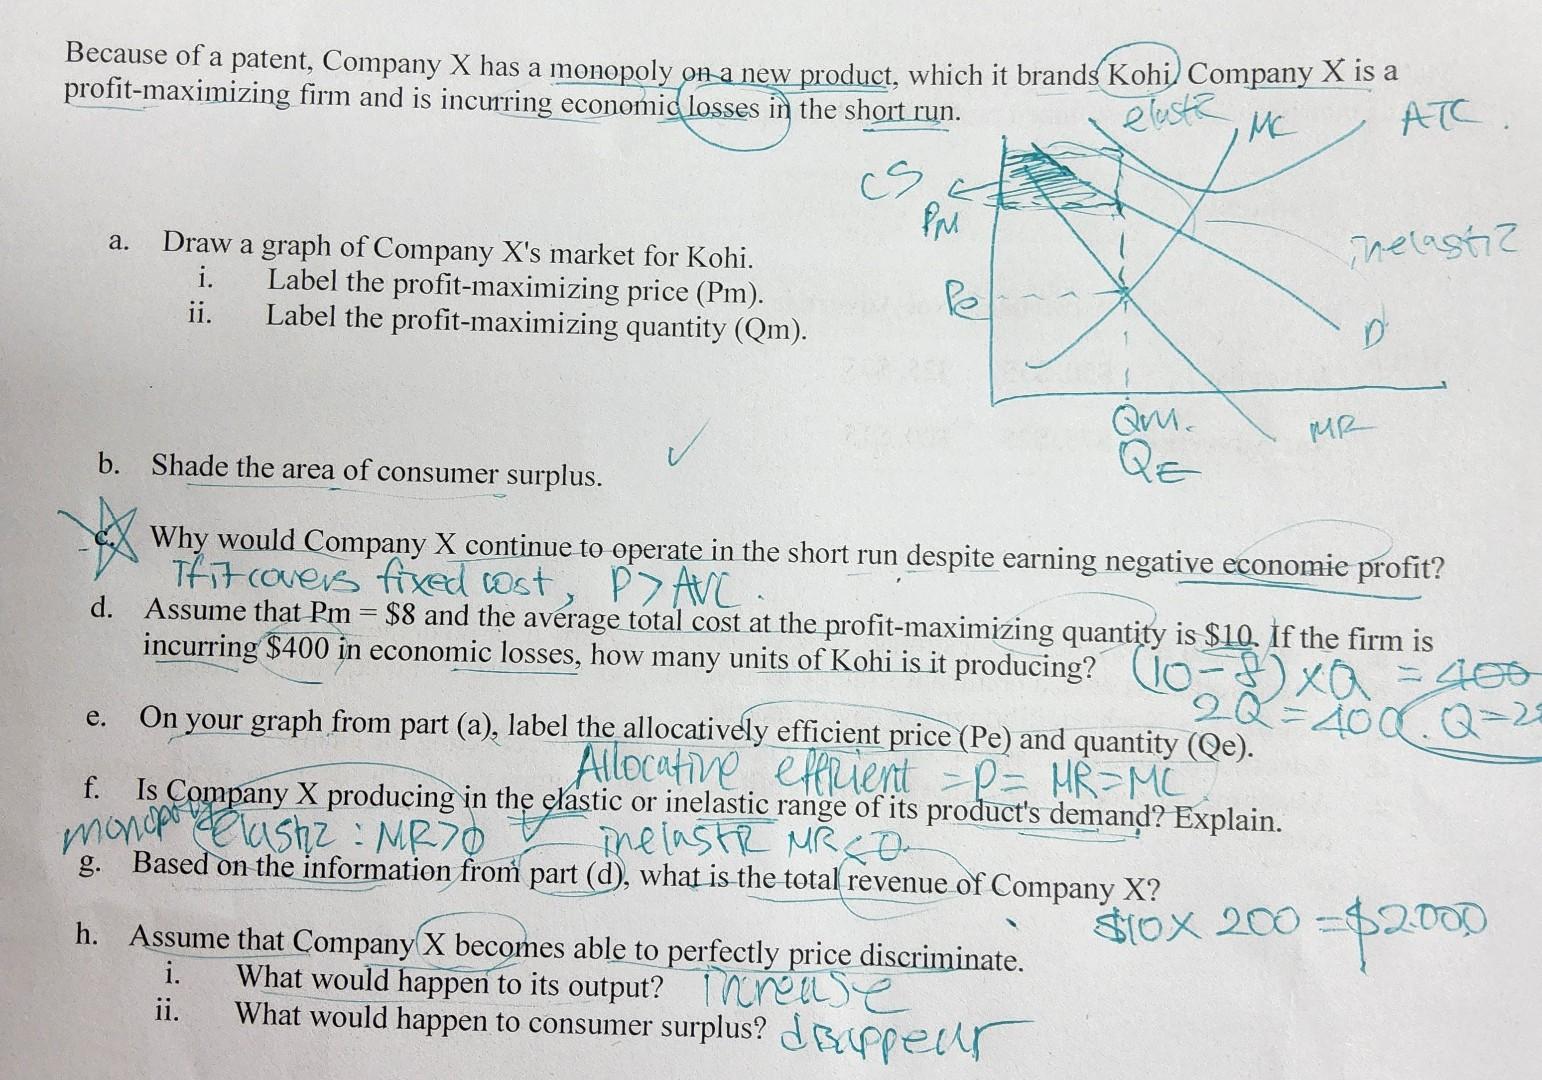 Because of a patent, Company X has a monopoly on a new product, which it brands Kohi. Company X is a
profit-maximizing firm and is incurring economic losses in the short run.
elastic MC ATC
CS
PM
inelastic
a. Draw a graph of Company X's market for Kohi.
i. Label the profit-maximizing price (Pm).
Pe
ii. Label the profit-maximizing quantity (Qm).
D
QM.
MR
QE
b. Shade the area of consumer surplus.
c. Why would Company X continue to operate in the short run despite earning negative economic profit?
If it covers fixed cost, P > AVC.
d. Assume that Pm = $8 and the average total cost at the profit-maximizing quantity is $10. If the firm is
incurring $400 in economic losses, how many units of Kohi is it producing? (10-8) x Q = 400
2Q = 400. Q=2
e. On your graph from part (a), label the allocatively efficient price (Pe) and quantity (Qe).
Allocative efficient = P = MR=MC
f. Is Company X producing in the elastic or inelastic range of its product's demand? Explain.
monopoly elastic : MR>0 inelastic MR<0
g. Based on the information from part (d), what is the total revenue of Company X?
$10 x 200 = $2000
h. Assume that Company X becomes able to perfectly price discriminate.
i. What would happen to its output? increase
ii. What would happen to consumer surplus? disappear